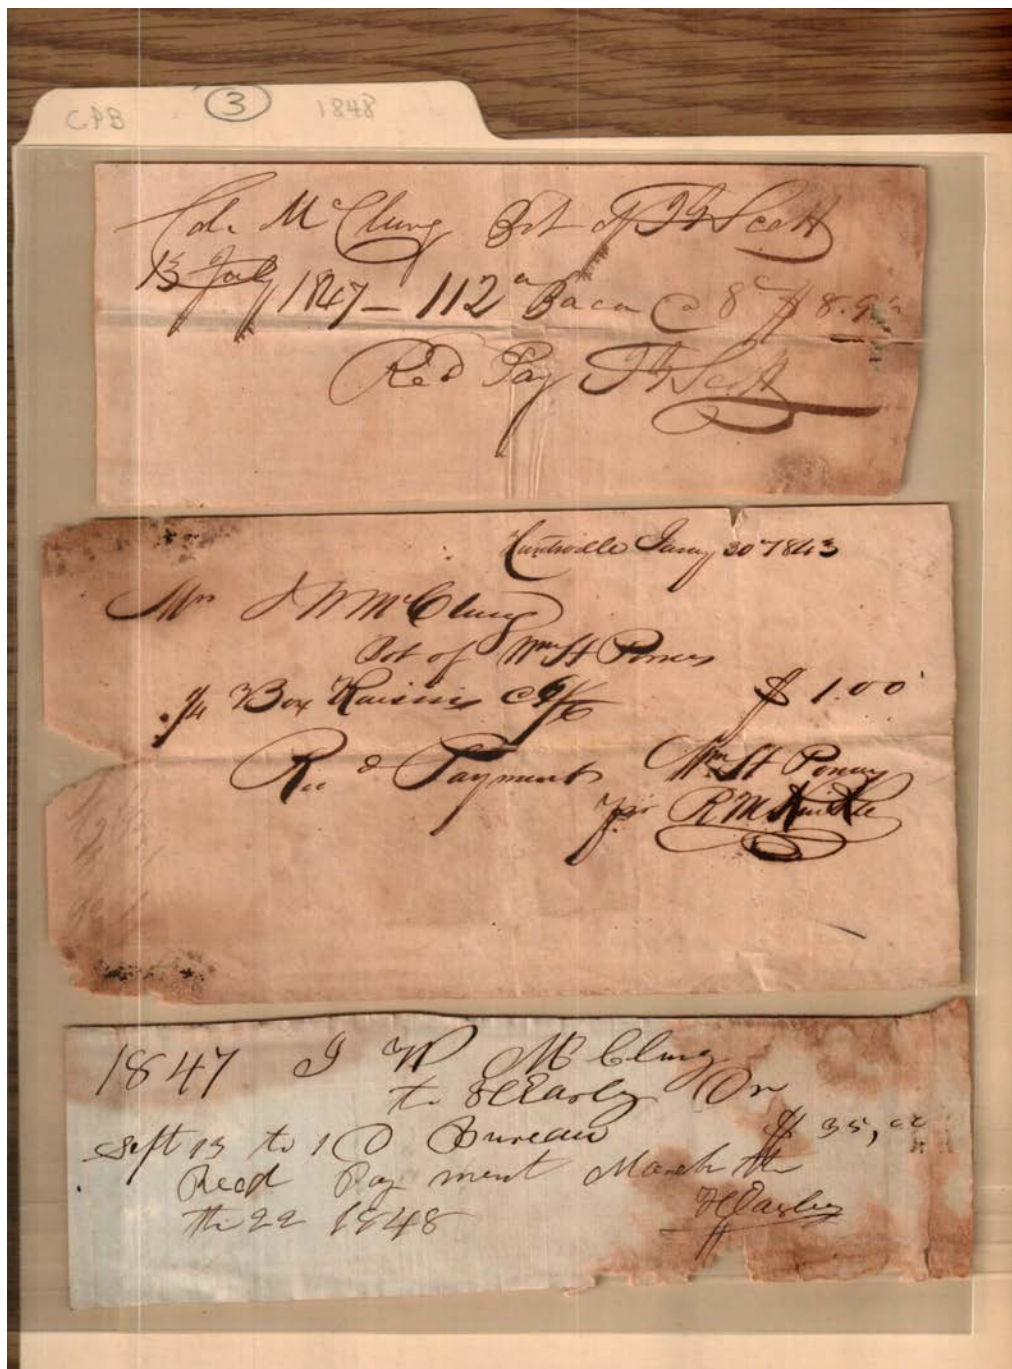 CPB 3 1848
Col. McClung Bot of Scott
13 July 1847 – 112 Bacon @ 8 $ 8.96
Recd Pay Scott
Huntsville Jany 30 1843
Mr J W McClung
Bot of Wm H Power
1/4 Box Raisins @ $ 1.00
Recd Payment Wm H Power
R M
1847 J W McClung
to Easley Dr
Sept 13 to 1 D Bureau $ 35,00
Recd Pay ment March the
the 22 1848 Easley